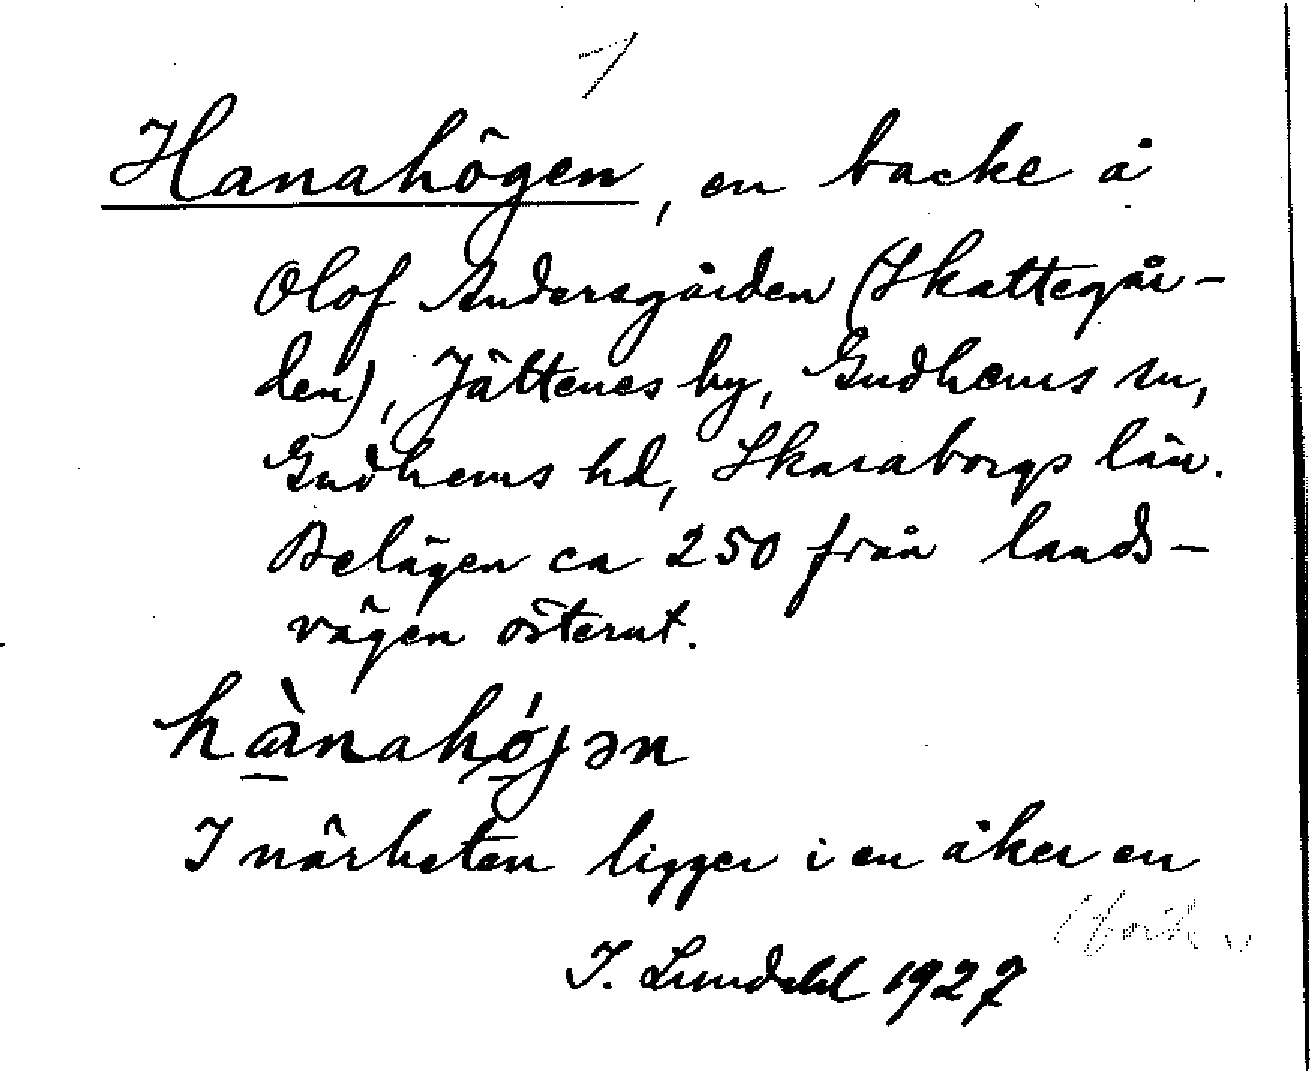 1
Hanahögen, en backe å
Olof Andersgården (Skattegår-
den), Jättenes by, Gudhems sn,
Gudhems hd, Skaraborgs län.
Belägen ca 250 från lands-
vägen österut.
hànahǿjən
I närheten ligger i en åker en
I. Lundahl 1927